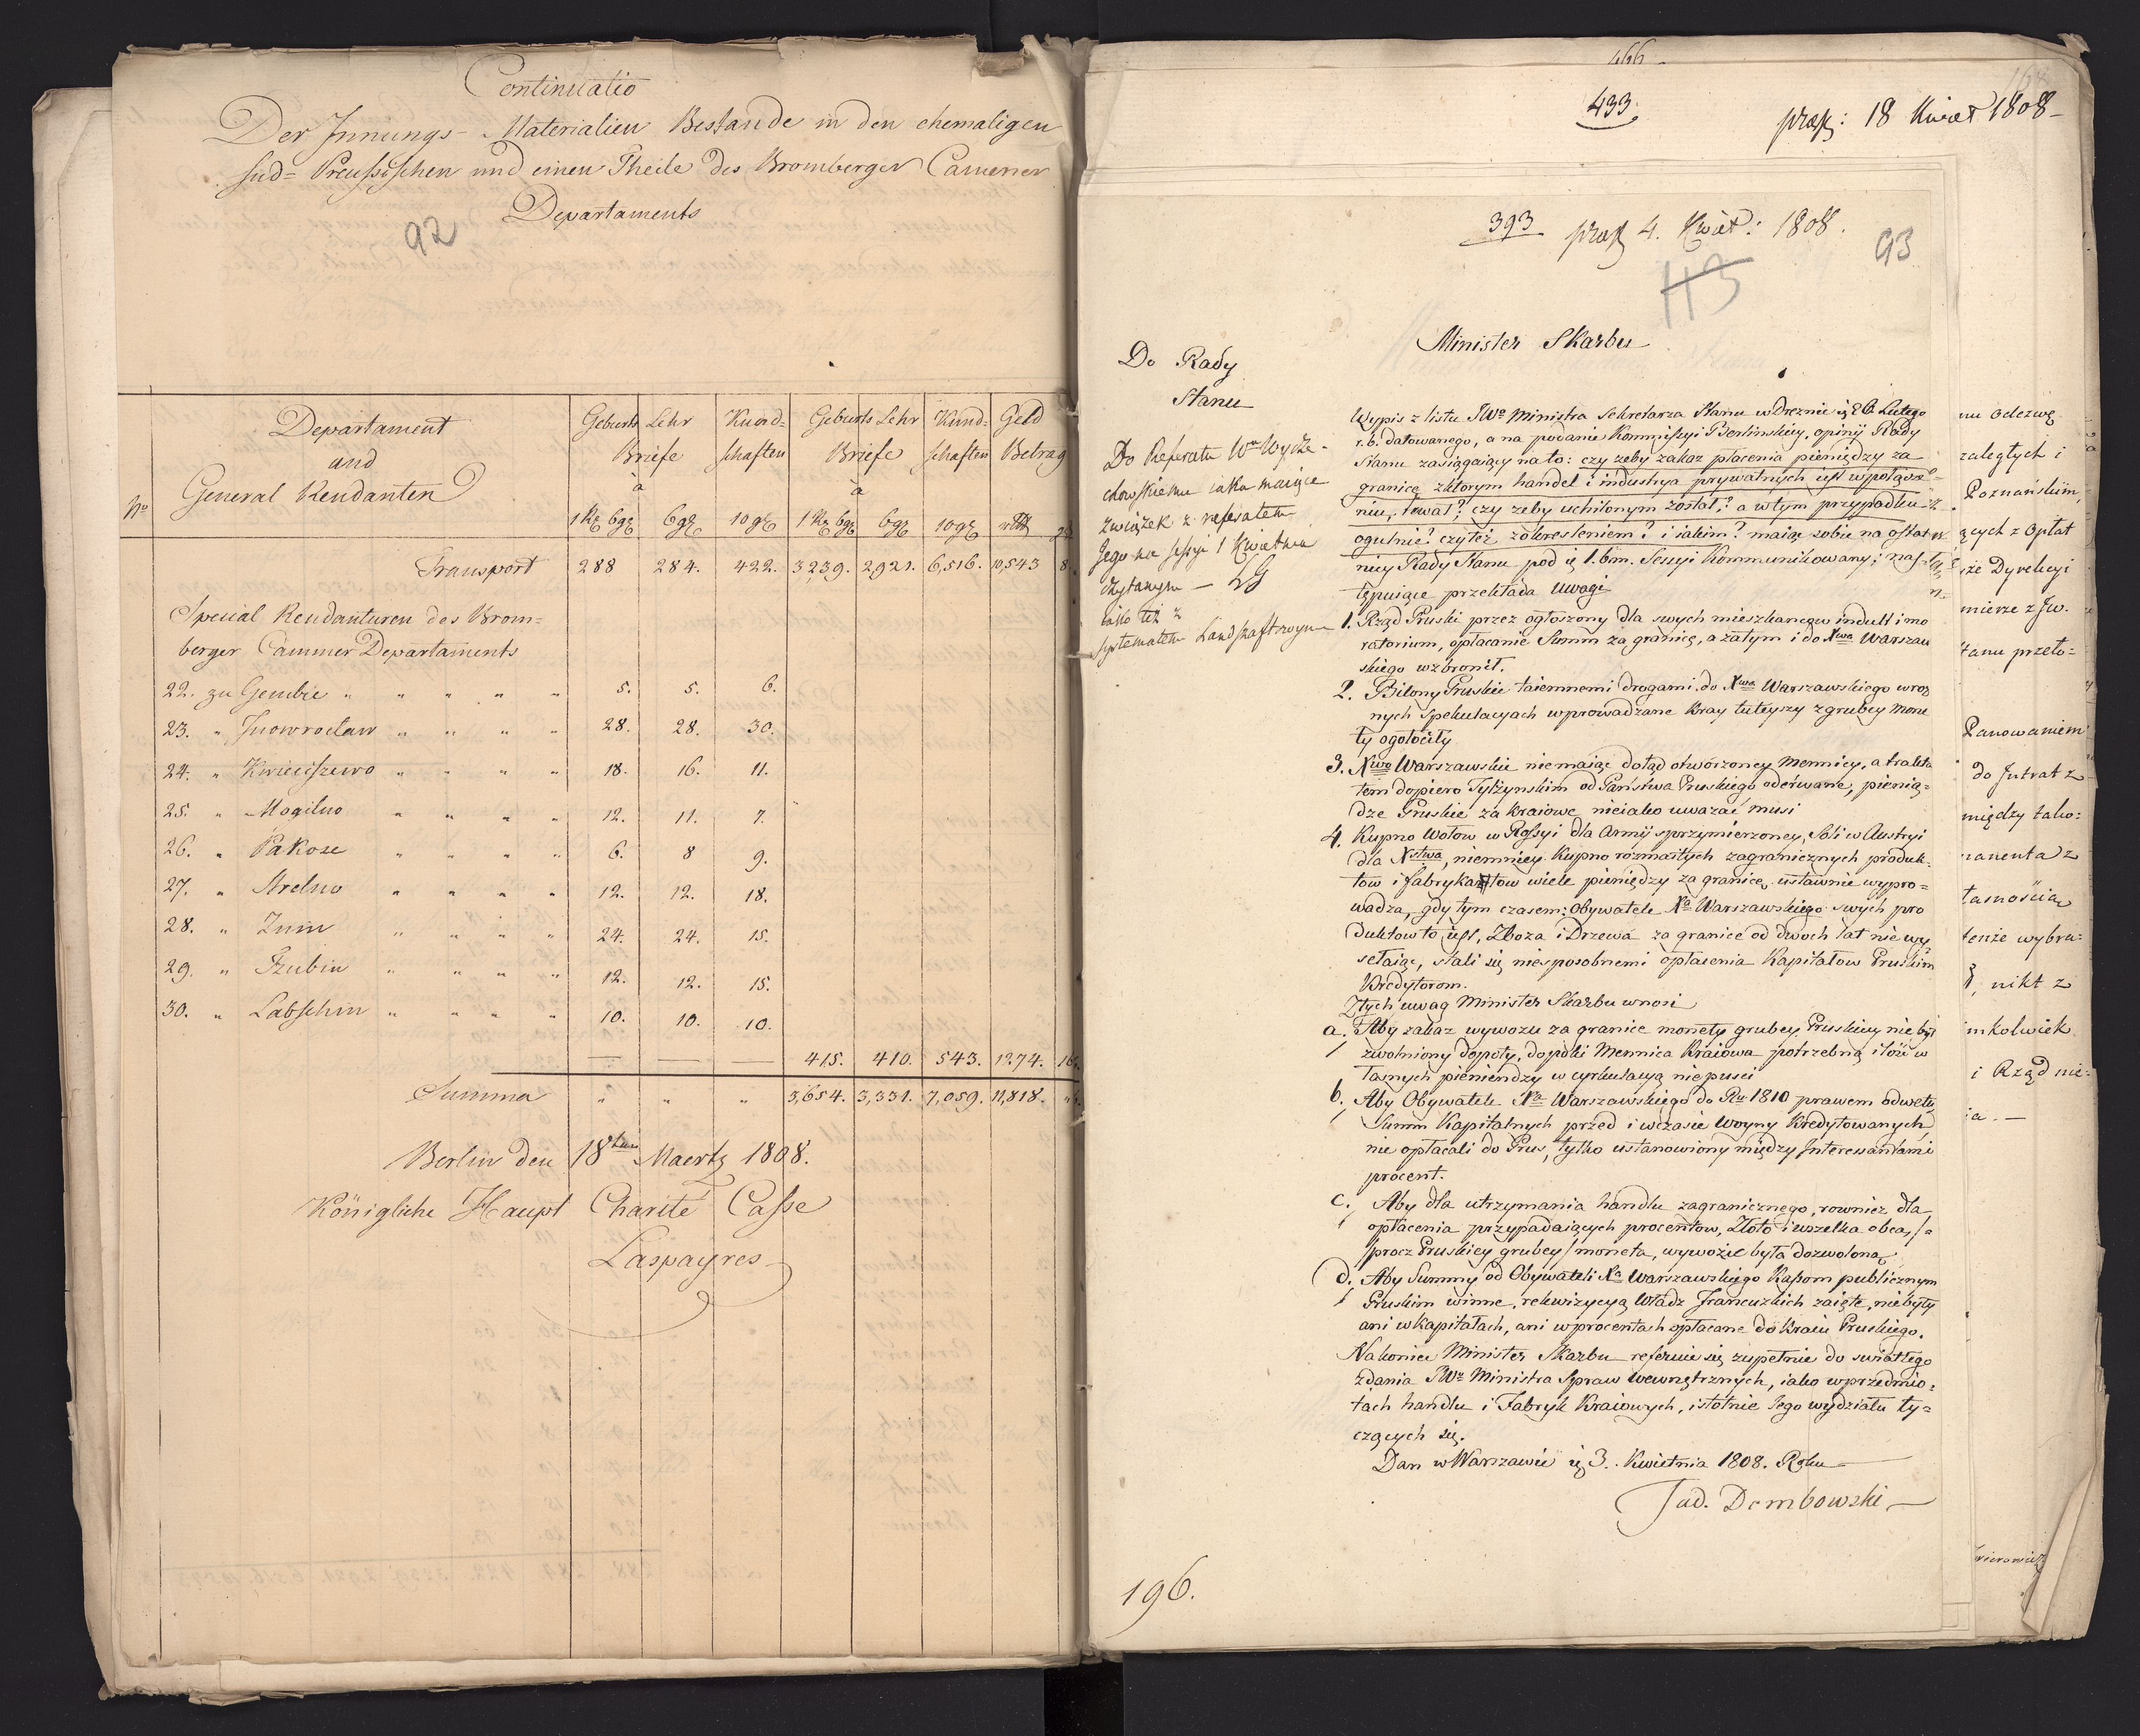 Continuatio
Der Innungs-Materialien Bestande in den ehemaligen
sud-Preussischen und einen Theile des Bromberger Cammer
Departaments
92
No
Departament
und
General Rendanten
Geburts Lehr Kund- Geburts Lehr Kund- Geld
Briefe schaften Briefe schaften Betrag
à à
1 Rt 6 gr 6 gr 10 gr 1 Rt 6 gr 6 gr 10 gr
Transport 288 284. 422. 3239. 2921. 6,516. 10,543 8.
Special Rendanturen des Brom=
berger Cammer Departaments
22. zu Gembic " " " " " 5. 5. 6.
23. " Inowroclaw " " " " 28. 28. 30.
24. " Kwieciszewo " " " " 18. 16. 11.
25. " Mogilno " " " " 12. 11. 7.
26. " Pakosc " " " " 6. 8 9.
27. " Strelno " " " " 12. 12. 18.
28. " Znin " " " " 24. 24. 15.
29. " Szubin " " " " 12. 12. 15.
30. " Labschin " " " " 10. 10. 10.
— — — 415. 410. 543. 1274. 16.
Summa " " " 3,654. 3,331. 7,059. 11,818. "
Berlin den 18ten Maertz 1808.
Königliche Haupt Charité Casse
Laspeyres
466
433.
præs: 18 Kwiet 1808
393 præs 4. Kwiet: 1808.
93
113
Minister Skarbu
Do Rady
Stanu
Do Referatu Wo Wycze-
chowskiemu iako maiące
związek z referatem
Jego na sessyi 1 Kwietnia
czytanym —
iako też z
systematem Landszaftowym
Wypis z listu JWo Ministra Sekretarza Stanu w Dreznie 26 Lutego
r. b. datowanego, a na podanie Kommissyi Berlinskiey, opinij Rady
Stanu zasiągaiący na to: czy zeby zakaz płacenia pieniędzy za
granicę z ktorym handel i industrya prywatnych iest w połącze-
niu, trwał? czy zeby uchilonym został? a w tym przypadku
ogulnie? czy też z okresleniem? i iakim? maiąc sobie na ostat
niey Rady Stanu pod 1. b. m. Sessyi Kommunikowany; nas-
tępuiące przekłada uwagi
1. Rząd Pruski przez ogłoszony dla swych mieszkancow indult i mo
ratorium, opłacanie Summ za granicę, a zatym i do Xwa Warszaw
skiego wzbronił.
2. Bilony Pruskie taiemnemi drogami do Xwa Warszawskiego w roz
nych spekulacyach wprowadzane Kray tuteyszy z grubey mone
ty ogołociły
3. Xwo Warszawskie niemaiąc dotąd otworzoney Mennicy, a trakta
tem dopiero Tylżynskim od Państwa Pruskiego oderwane, pienią=
dze Pruskie za kraiowe nieiako uważać musi
4. Kupno Wołow w Rossyi dla Armij sprzymierzoney, Soli w Austryi
dla Xstwa, niemniey Kupno rozmaitych zagranicznych produk=
tow i fabrykatow wiele pieniędzy za granicę ustawnie wypro=
wadza, gdy tym czasem: Obywatele Xa Warszawskiego swych pro
duktow to iest, Zboza i Drzewa za granice od dwoch lat nie wy=
sełaiąc, stali się niesposobnemi opłacenia Kapitałow Pruskim
Kredytorom.
Z tych uwag Minister Skarbu wnosi
a. Aby zakaz wywozu za granice monety grubey Pruskiey nie był
zwolniony dopoty, dopoki Mennica Kraiowa potrzebną ilość w
łasnych pieniendzy w cyrkulacyą niepusci
b. Aby Obywatele Xa Warszawskiego do Ru 1810 prawem odwetu
Summ Kapitalnych przed i w czasie Woyny Kredytowanych
nie opłacali do Prus, tylko ustanowiony między Interessantami
procent.
c. Aby dla utrzymania handlu zagranicznego, rownież dla
opłacenia przypadaiących procentow, Złoto i wszelka obca, /=
procz Pruskiey grubey / moneta, wywozic była dozwolona,
d. Aby Summy od Obywateli Xa Warszawskiego Kassom publicznym
Pruskim winne, rekwizycyą Władz Francuzkich zaięte, nie były
ani w kapitałach, ani w procentach opłacane do Kraiu Pruskiego.
Nakoniec Minister Skarbu referuie się zupełnie do swiatłego
zdania JWo Ministra Spraw Wewnętrznych, iako w przedmio=
tach handlu i Fabryk Kraiowych, istotnie Iego wydziału ty=
czących się.
Dan w Warszawie 3. Kwietnia 1808. Roku
Jad. Dembowski
196.
nu odezwę
zaległych i
Poznańskim,
ących z opłat
że Dyrekcyi
mierze z Jw.
tanu przeło=
Panowaniem
do Intrat z
między tako=
anenta z
łasnością
tenże wybra=
nikt z
mkolwiek
i Rząd nie=
ia. —